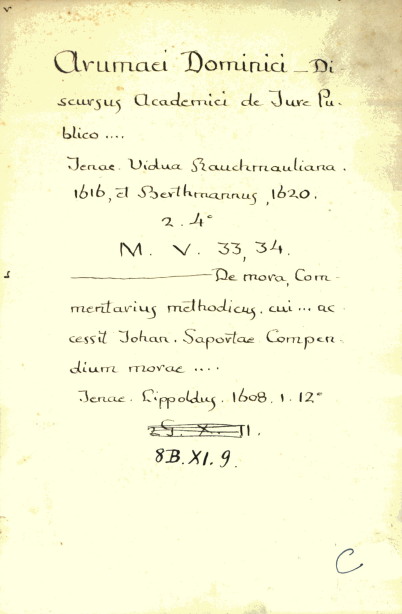 Arumaei Dominici – Di-
scursus Academici de Jure Pu-
blico ....
Jenae. Vidua Rauchmauliana.
1616, et Berthmannus, 1620.
2. 4°
M. V. 33, 34.
De mora, Com-
mentarius methodicus, cui ... ac-
cessit Johan. Saportae Compen-
dium morae ....
Jenae. Lippoldus. 1608. 1. 12°
8B. XI. 9.
C